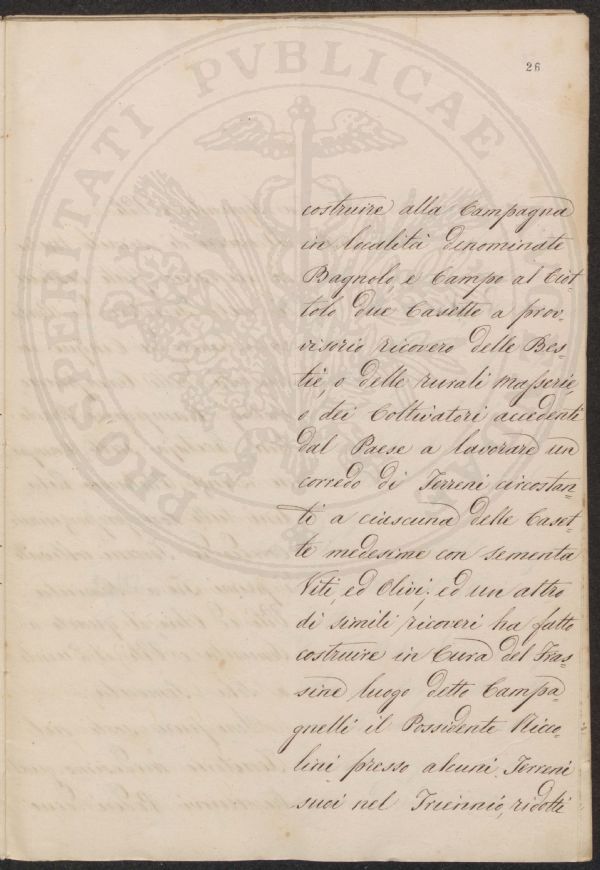 26
PROSPERITATI PVBLICAE
costruire alla Campagna
in località denominate
Bagnolo, e Campo al Ciot-
tolo due Casette a prov-
visorio ricovero delle Bes-
tie, o delle rurali masserie,
o dei Coltivatori accedenti
dal Paese a lavorare un
corredo di Terreni circostan-
ti a ciascuna delle Caset-
te medesime con sementa
Viti, ed Olivi; ed un altro
di simili ricoveri ha fatto
costruire in Cura del Fras-
sine luogo detto Campa-
gnelli il Possidente Nicco-
lini presso alcuni Terreni
suoi nel Triennio, ridotti